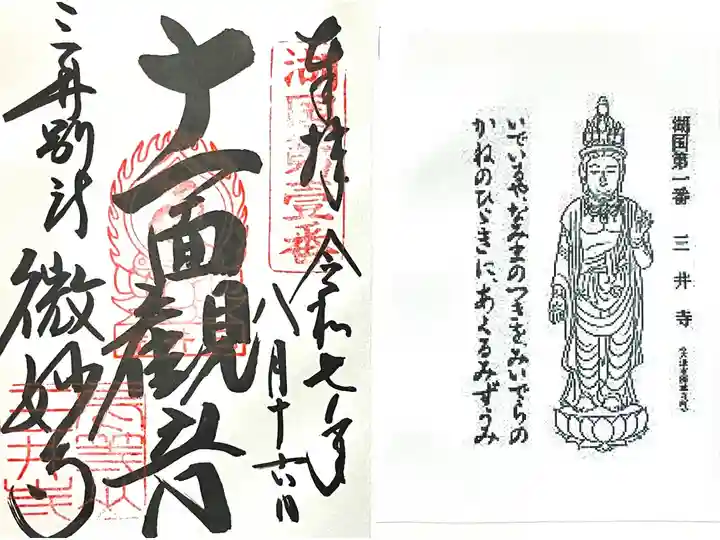 奉拝 令和七年
八月十六日
湖国第壹番
十一面觀音
三井別所 微妙寺
湖国第一番 三井寺
いでいるや、なみまのつきをみいでらの
かねのひゞきに、あくるみずうみ